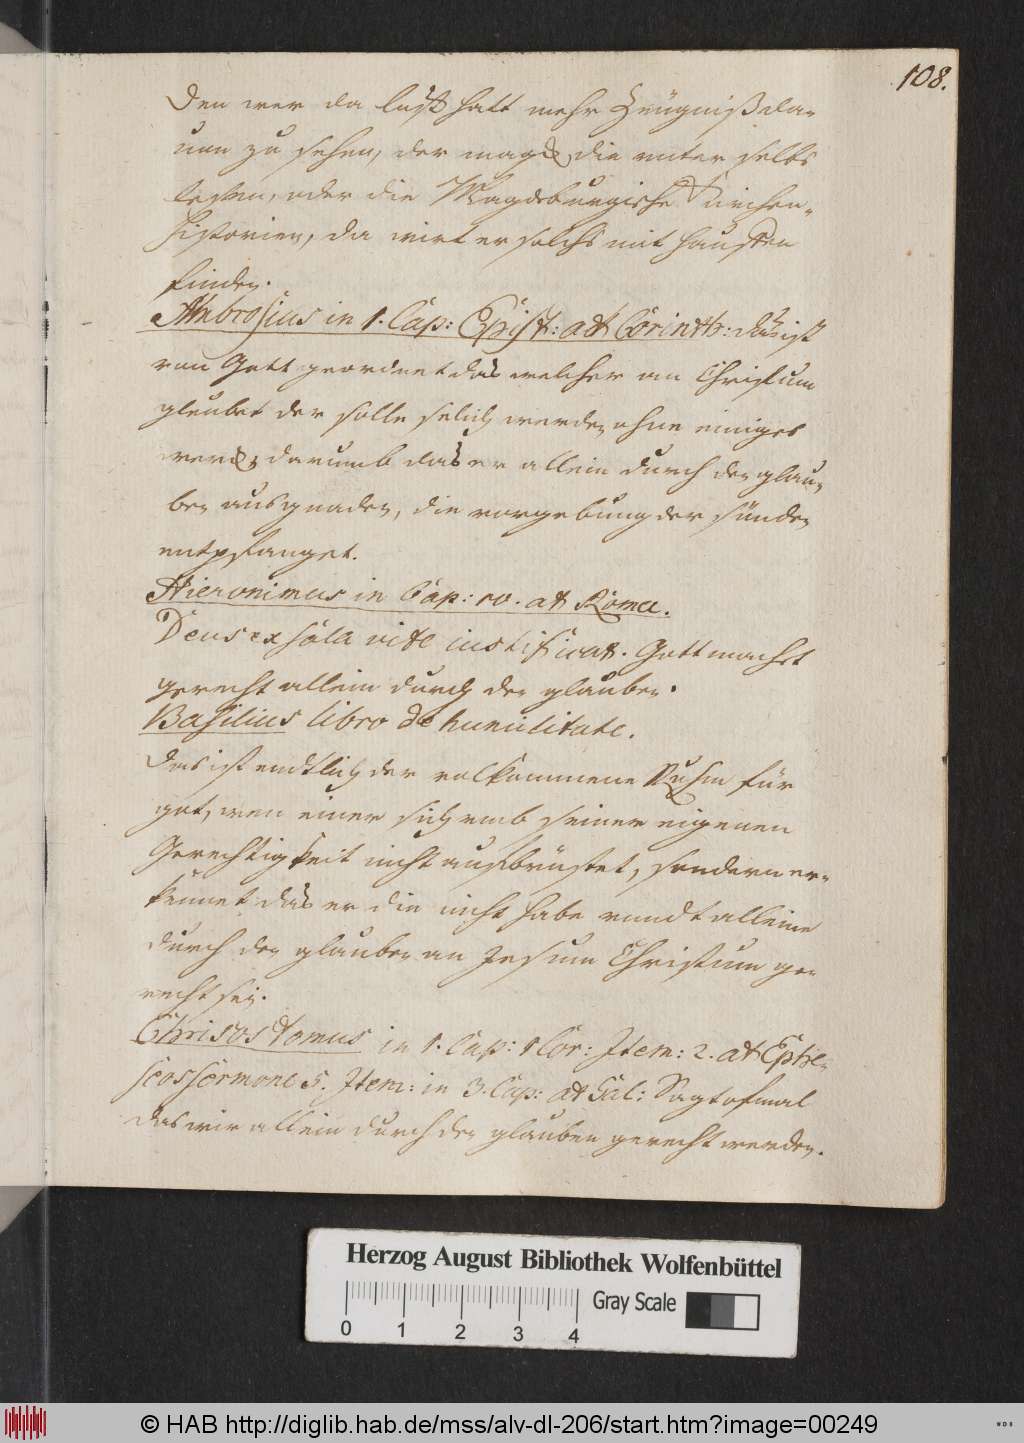 108.
Den wer da lust hatt mehr Zeügnißs da-
uon zu sehen, der mags die veter selbs
lesen, oder die Magdeburgische Kirchen-
historien, da wirt er solchs mit hauffen
finden.
Ambrosius in 1. Cap: Epist: ad Corinth: das ist
von Gott geordnet das welcher an Christum
gleubet der solle selich werden ohne einiges
werck, darumb das er allein durch den glau-
ben aus gnaden, die vorgebung der sünden
entpfanget.
Hieronimus in Cap: 10. at Roma.
Deus ex sola vite iustificat. Gott machet
gerecht allein durch den glauben.
Basilius libro de humilitate.
Das ist endtlich der volkommene Ruhm für
got, wen einer sich vmb seiner eigenen
Gerechtigkeit nicht aufbrüstet, sondern er-
kennet das er die nicht habe vnndt alleine
durch den glauben an Jesum Christum ge-
recht sei.
Chrisostomus in 1. Cap: 1 Cor: Item: 2. at Ephe-
seos sermone 5. Item: in 3. Cap: at Gal: Sagt ofmal
das wir allein durch den glauben gerecht werden.
Herzog August Bibliothek Wolfenbüttel
Gray Scale
0 1 2 3 4
© HAB http://diglib.hab.de/mss/alv-dl-206/start.htm?image=00249